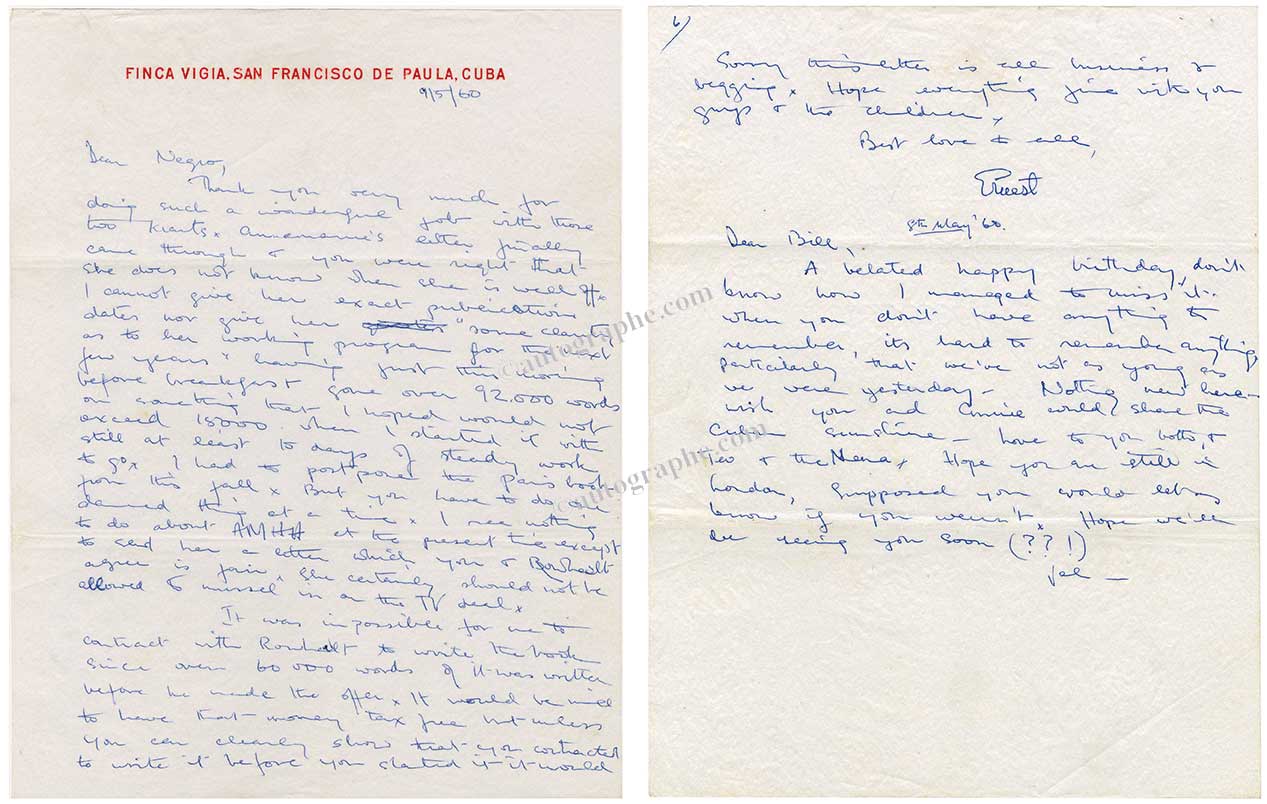 FINCA VIGIA, SAN FRANCISCO DE PAULA, CUBA
9/5/60
Dear Negro,
Thank you very much for
doing such a wonderful job with those
two Krauts x Annemarie's letter finally
came through & you were right that
she does not know when she is well off x
I cannot give her exact publication
dates nor give her "some clarity
as to her working program for the next
few years" having just this morning
before breakfast gone over 92.000 words
on something that I hoped would not
exceed 15000 when I started it with
still at least 10 days of steady work
to go x I had to postpone the Paris book
from this fall x But you have to do one
damned thing at a time x I see nothing
to do about AMHH at the present time except
to send her a letter which you & Rowhalt
agree is fair x She certainly should not be
allowed to mussel in on the TV deal x
It was impossible for me to
contract with Rowhalt to write the book
since over 60 000 words of it was written
before he made the offer x It would be nice
to have that money tax free but unless
you can clearly show that you contracted
to write it before you started it it would
6/
Sorry this letter is all business &
begging x Hope everything fine with you
guys & the children x
Best love to all,
Ernest
8th May '60.
Dear Bill,
A belated happy birthday, don't
know how I managed to miss it.
When you don't have anything to
remember, its hard to remember anything,
particularly that we've not as young as
we were yesterday - Nothing new here -
wish you and Annie could share the
Cuban sunshine - Love to you both, &
& the Nena x Hope you are still in
London, supposed you would let us
know if you weren't x Hope we'll
be seeing you soon (??!)
Val -
autographe.com
autographe.com